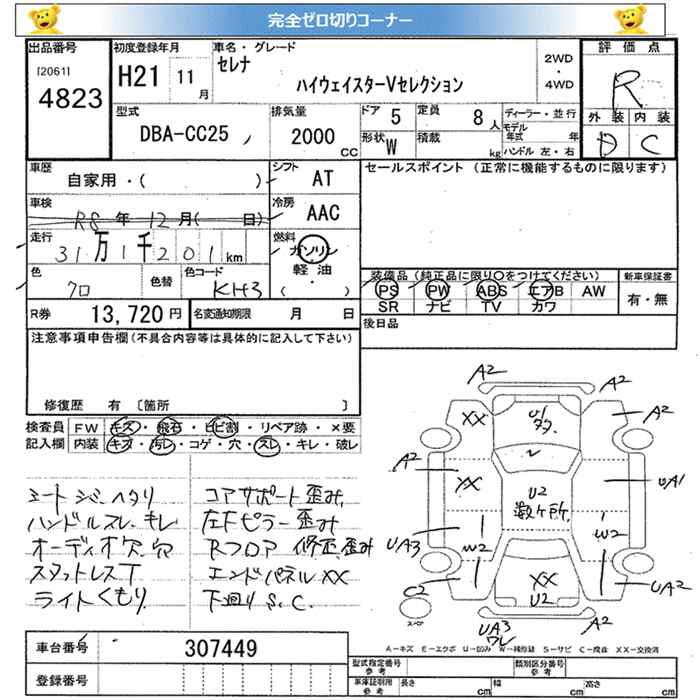 完全ゼロ切りコーナー
出品番号
[2061]
4823
初度登録年月
H21 11月
車名・グレード
セレナ
ハイウェイスターVセレクション
2WD・4WD
評価点
R
外装 内装
D C
型式
DBA-CC25
排気量
2000 CC
ドア 5
定員 8人
形状 W
積載 kg
ディーラー・並行
モデル年式 年
ハンドル 左・右
車歴
自家用・( )
シフト AT
車検
R8年12月( 日)
冷房 AAC
走行
31万1千201km
燃料
ガソリン
軽油
( )
色
クロ
色替
色コード
KH3
R券 13,720円
名変通知期限 月 日
セールスポイント (正常に機能するものに限ります)
装備品(純正品に限り○をつけてください)
PS PW ABS エアB AW
SR ナビ TV カワ
新車保証書
有・無
後日品
注意事項申告欄(不具合内容等は具体的に記入して下さい)
修復歴 有 [箇所 ]
検査員記入欄
FW キズ・飛石・ヒビ割・リペア跡・×要
内装 キズ・汚レ・コゲ・穴・スレ・キレ・破レ
シートシミ、ヘタリ
ハンドルスレ、キレ
オーディオ欠、穴
スタットレスT
ライトくもり
コアサポート歪み
左Fピラー歪み
Rフロア 修正、歪み
エンドパネルXX
下廻りS.C.
A2
A2
XX
U1
A2
A2
XX
U2
数ヶ所
UA1
UA3
W2
W2
C2
XX
U2
UA2
スペア
UA3
ワレ
A2
A-キズ E-エクボ U-凹み W-補修跡 S-サビ C-腐食 XX-交換済
車台番号 307449
登録番号
型式指定番号 参考
類別区分番号 参考
車庫証明用 参考
長さ cm
幅 cm
高さ cm